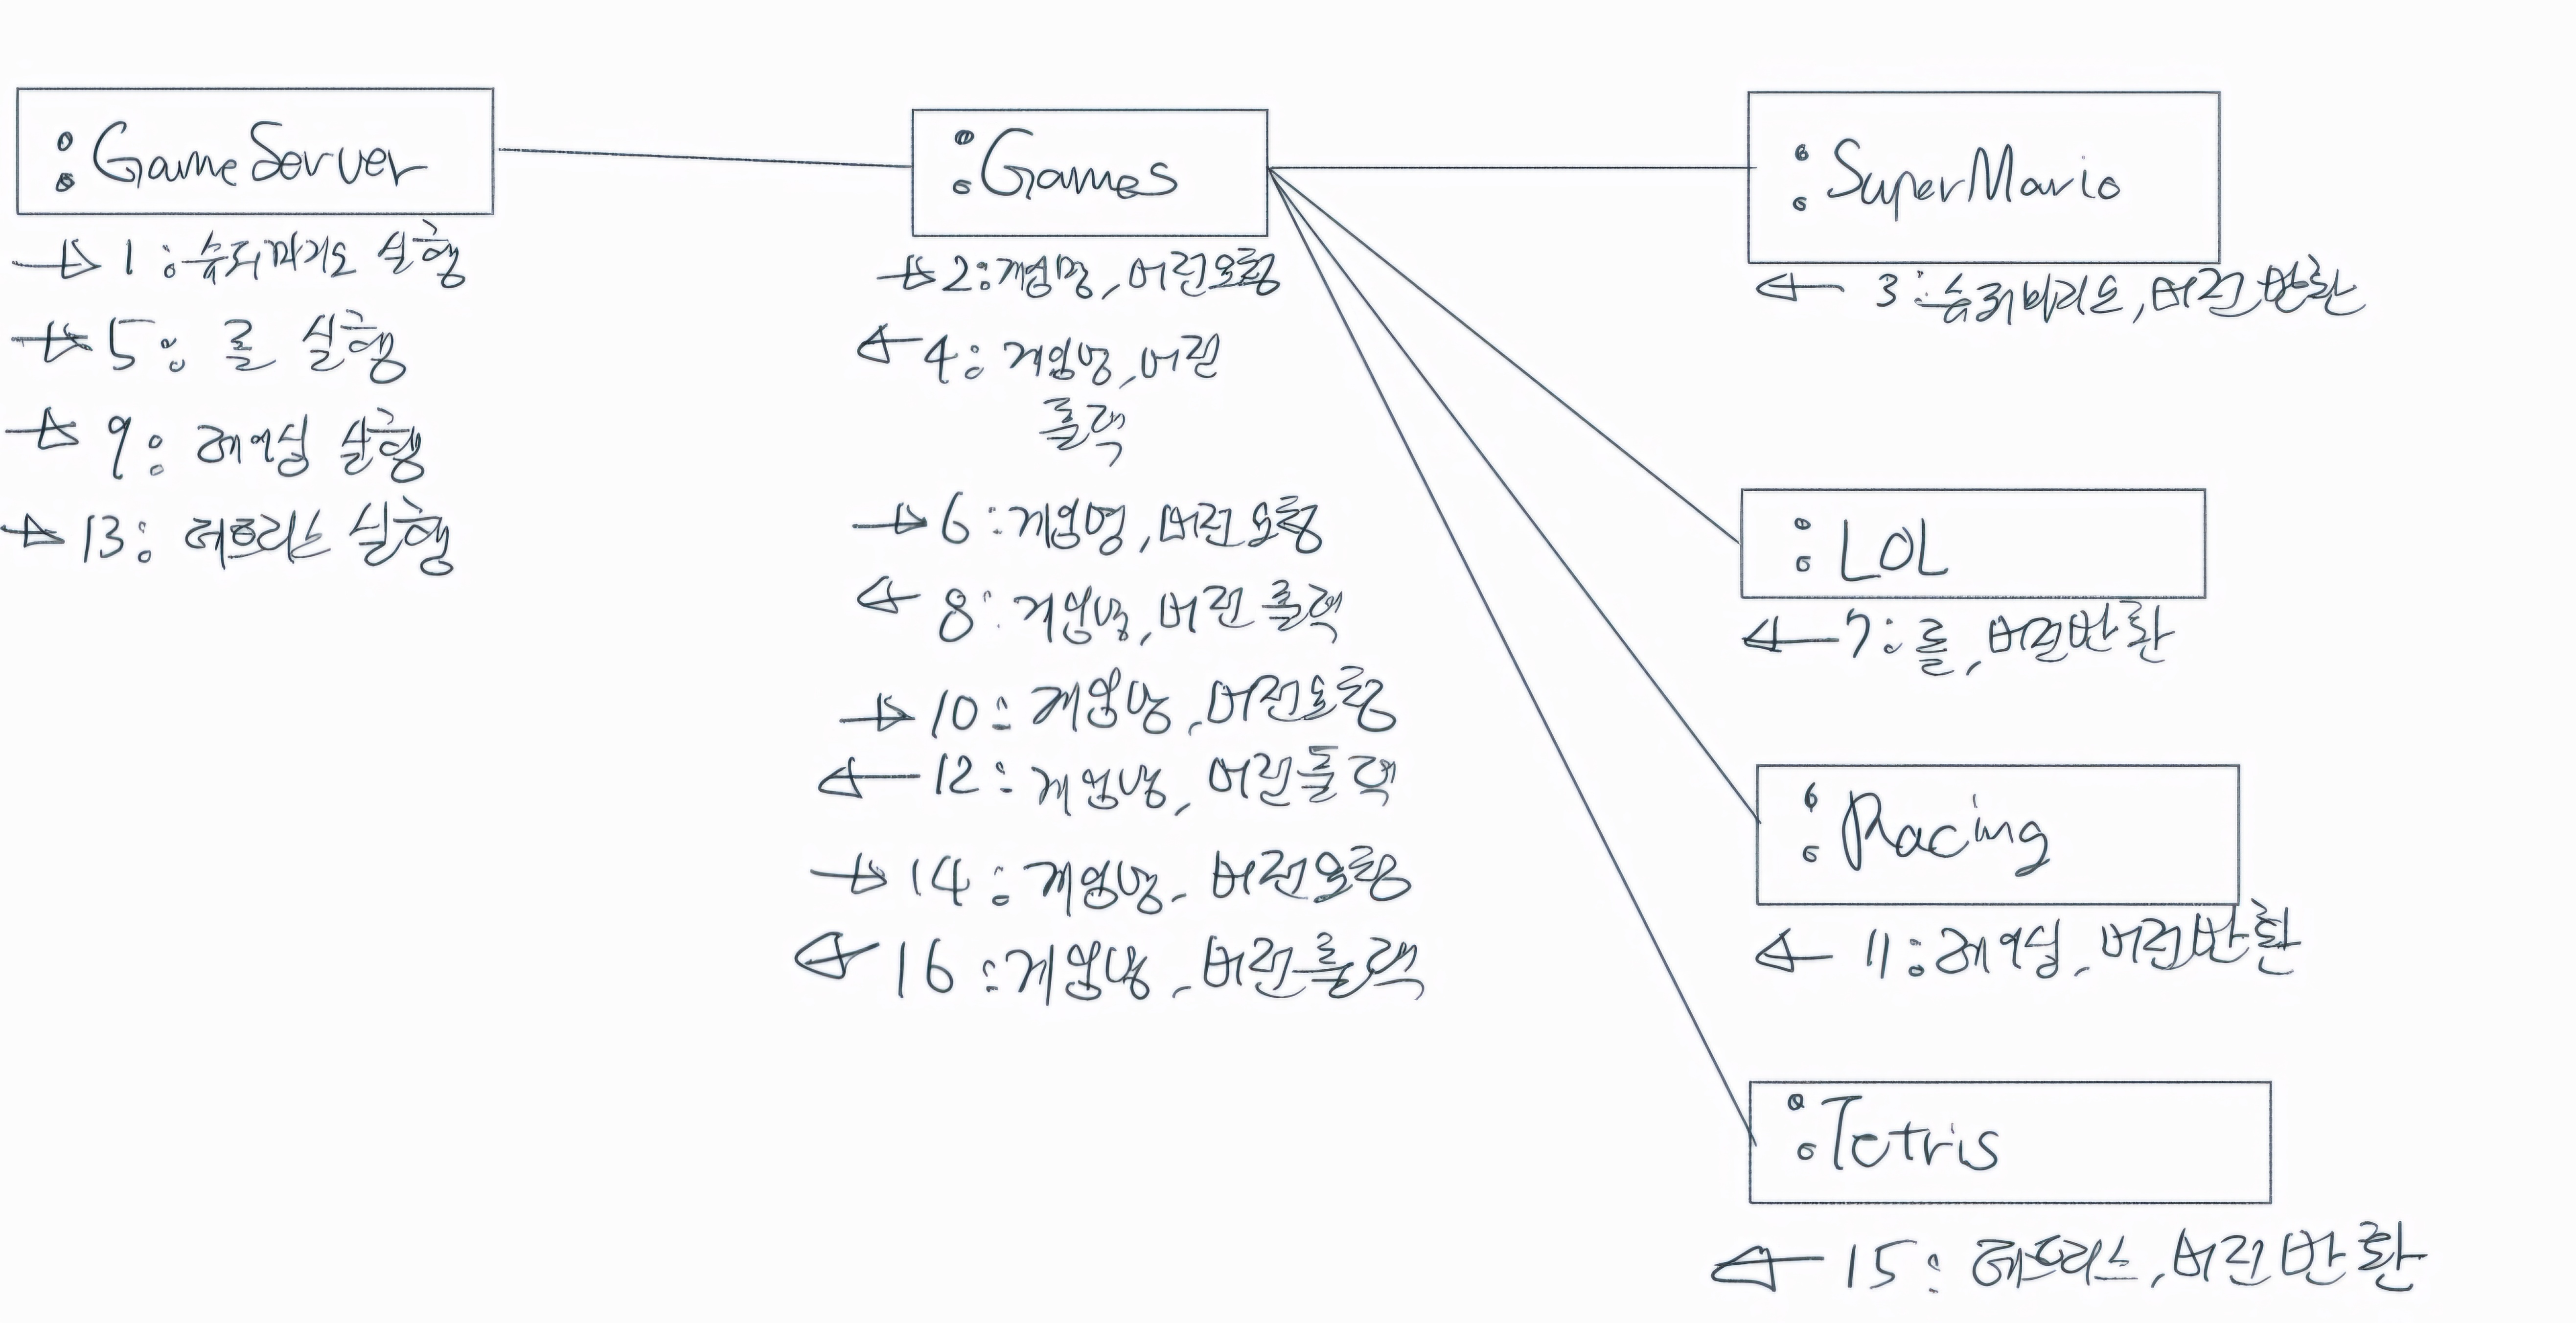 :GameServer
→ 1:슈퍼마리오 실행
→ 5: 롤 실행
→ 9: 레이싱 실행
→ 13: 테트리스 실행
:Games
→ 2:게임명, 버전요청
← 4: 게임명, 버전
출력
→ 6:게임명, 버전요청
← 8: 게임명, 버전 출력
→ 10: 게임명, 버전요청
← 12: 게임명, 버전출력
→ 14: 게임명, 버전요청
← 16:게임명, 버전출력
:SuperMario
← 3:슈퍼마리오, 버전 반환
:LOL
← 7:롤, 버전반환
:Racing
← 11:레이싱, 버전반환
:Tetris
← 15: 테트리스, 버전반환